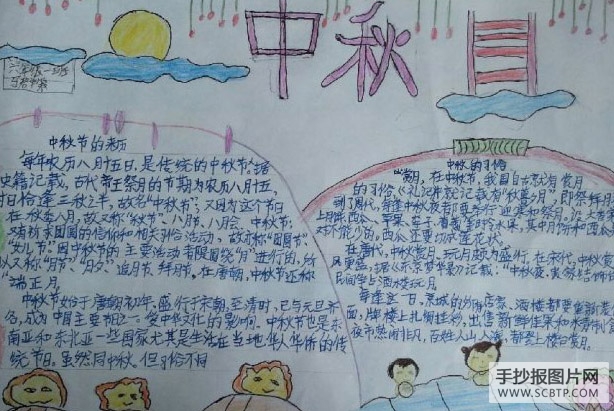 中秋月
六年级一班
中秋节的来历
每年农历八月十五日,是传统的中秋节。据
史籍记载,古代帝王祭月的节期为农历八月十五,
时日恰逢三秋之半,故名"中秋节";又因为这个节日
在秋季八月,故又称"秋节"、八月节、八月会、中秋节;
又有祈求团圆的信仰和相关习俗活动,故亦称"团圆节"、
"女儿节"。因中秋节的主要活动都是围绕"月"进行的,所
以又称"月节"、月夕、追月节、拜月节。在唐朝,中秋节还称
端正月。
中秋节始于唐朝初年,盛行于宋朝,至清时,已与元旦齐
名,成为中国主要节日之一。受中华文化的影响,中秋节也是东
南亚和东北亚一些国家尤其是生活在当地华人华侨的传
统节日。虽然同中秋。但习俗不同
中秋的习俗
在中秋节,我国自古就有赏月
的习俗《礼记》中就记载有"秋暮夕月",即祭拜月
到了周代,每逢中秋夜都要举行迎寒和祭月。
在唐代,中秋赏月、玩月颇为盛行。在宋代,中秋赏
风更盛,据《东京梦华录》记载:"中秋夜,贵家结饰
民间争占酒楼玩月
每逢这一日,京城的所有店家、酒楼都要重新装
面,牌楼上扎绸挂彩,出售新鲜佳果和
夜市热闹非凡,百姓人山人海,都登上楼台赏月。
手抄报图片网
WWW.SCBTP.COM